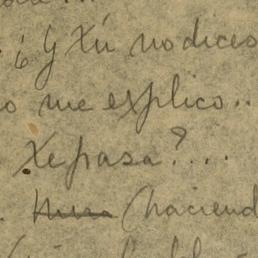 ¿ Y tú no dices
o me explico..
Xe pasa?....
. haciend